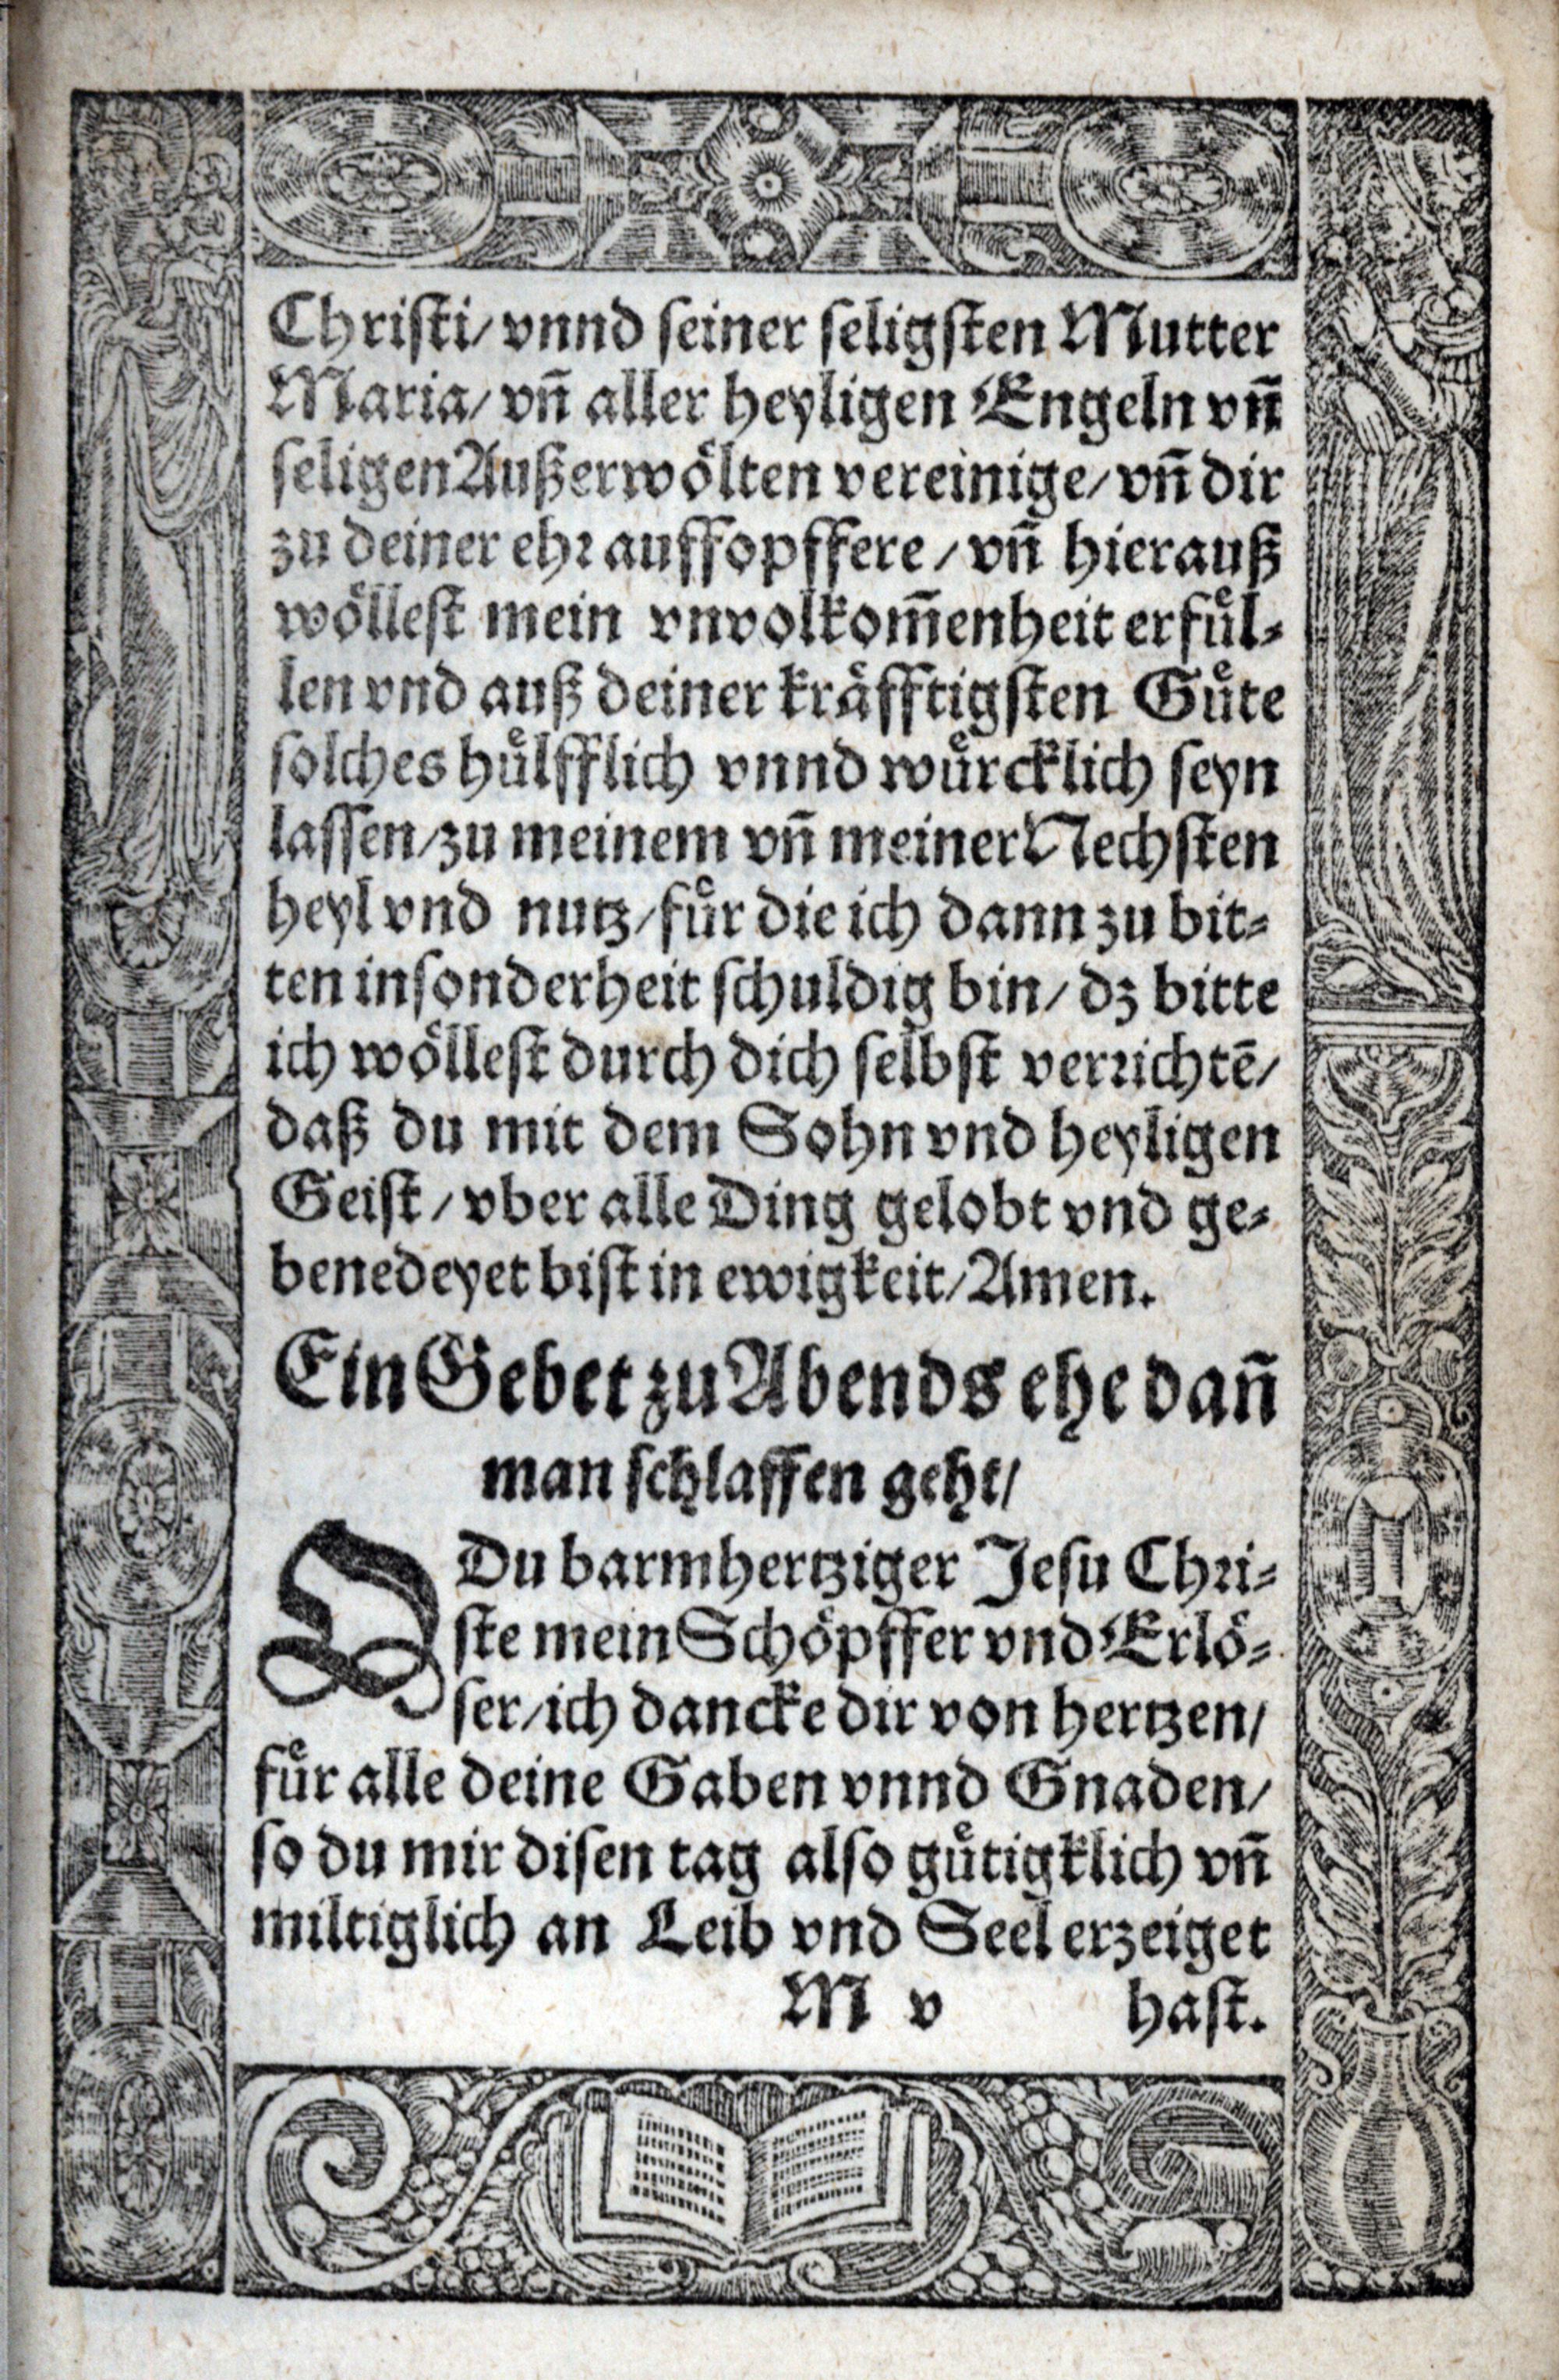 Christi/ vnnd seiner seligsten Mutter
Maria/ vn̄ aller heyligen Engeln vn̄
seligen Außerwoͤlten vereinige/ vn̄ dir
zu deiner ehr auffopffere/ vn̄ hierauß
woͤllest mein vnvolkom̄enheit erfuͤl⸗
len vnd auß deiner kraͤfftigsten Guͤte
solches huͤlfflich vnnd wuͤrcklich seyn
lassen/ zu meinem vn̄ meiner Nechsten
heyl vnd nutz/ fuͤr die ich dann zu bit⸗
ten insonderheit schuldig bin/ dz bitte
ich woͤllest durch dich selbst verrichtē/
daß du mit dem Sohn vnd heyligen
Geist/ vber alle Ding gelobt vnd ge⸗
benedeyet bist in ewigkeit/ Amen.
Ein Gebet zu Abends ehe dan̄
man schlaffen geht/
O Du barmhertziger Jesu Chri⸗
ste mein Schoͤpffer vnd Erloͤ⸗
ser/ ich dancke dir von hertzen/
fuͤr alle deine Gaben vnnd Gnaden/
so du mir disen tag also guͤtigklich vn̄
miltiglich an Leib vnd Seel erzeiget
M v hast.